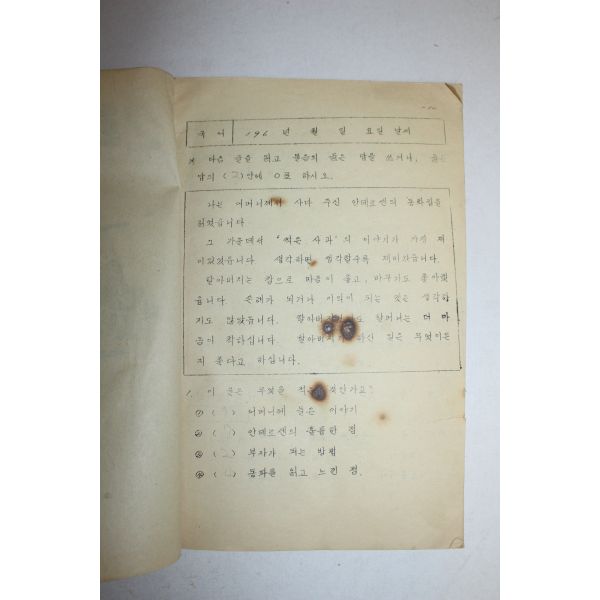 국어 196 년 월 일 요일 날씨
※ 다음 글을 읽고 물음의 옳은 말을 쓰거나, 옳은
답의 ( )안에 0표 하시오.
나는 어머니께서 사다 주신 안데르센의 동화집을
읽었습니다.
그 가운데서 '썩은 사과'의 이야기가 가장 재
미있었습니다. 생각하면 생각할수록 재미있습니다.
할아버지는 참으로 마음이 좋고, 바꾸기도 좋아했
습니다. 손해가 되거나 이익이 되는 것은 생각하
지도 않았습니다. 할머니는 더 마
음이 착하십니다. 하신 일은 무엇이든
지 좋다고 하십니다.
1. 이 글은 무엇을 적은 것인가요?
① ( ) 어머니께 들은 이야기
② ( ) 안데르센의 훌륭한 점
③ ( ) 부자가 되는 방법
④ ( ) 동화를 읽고 느낀 점.